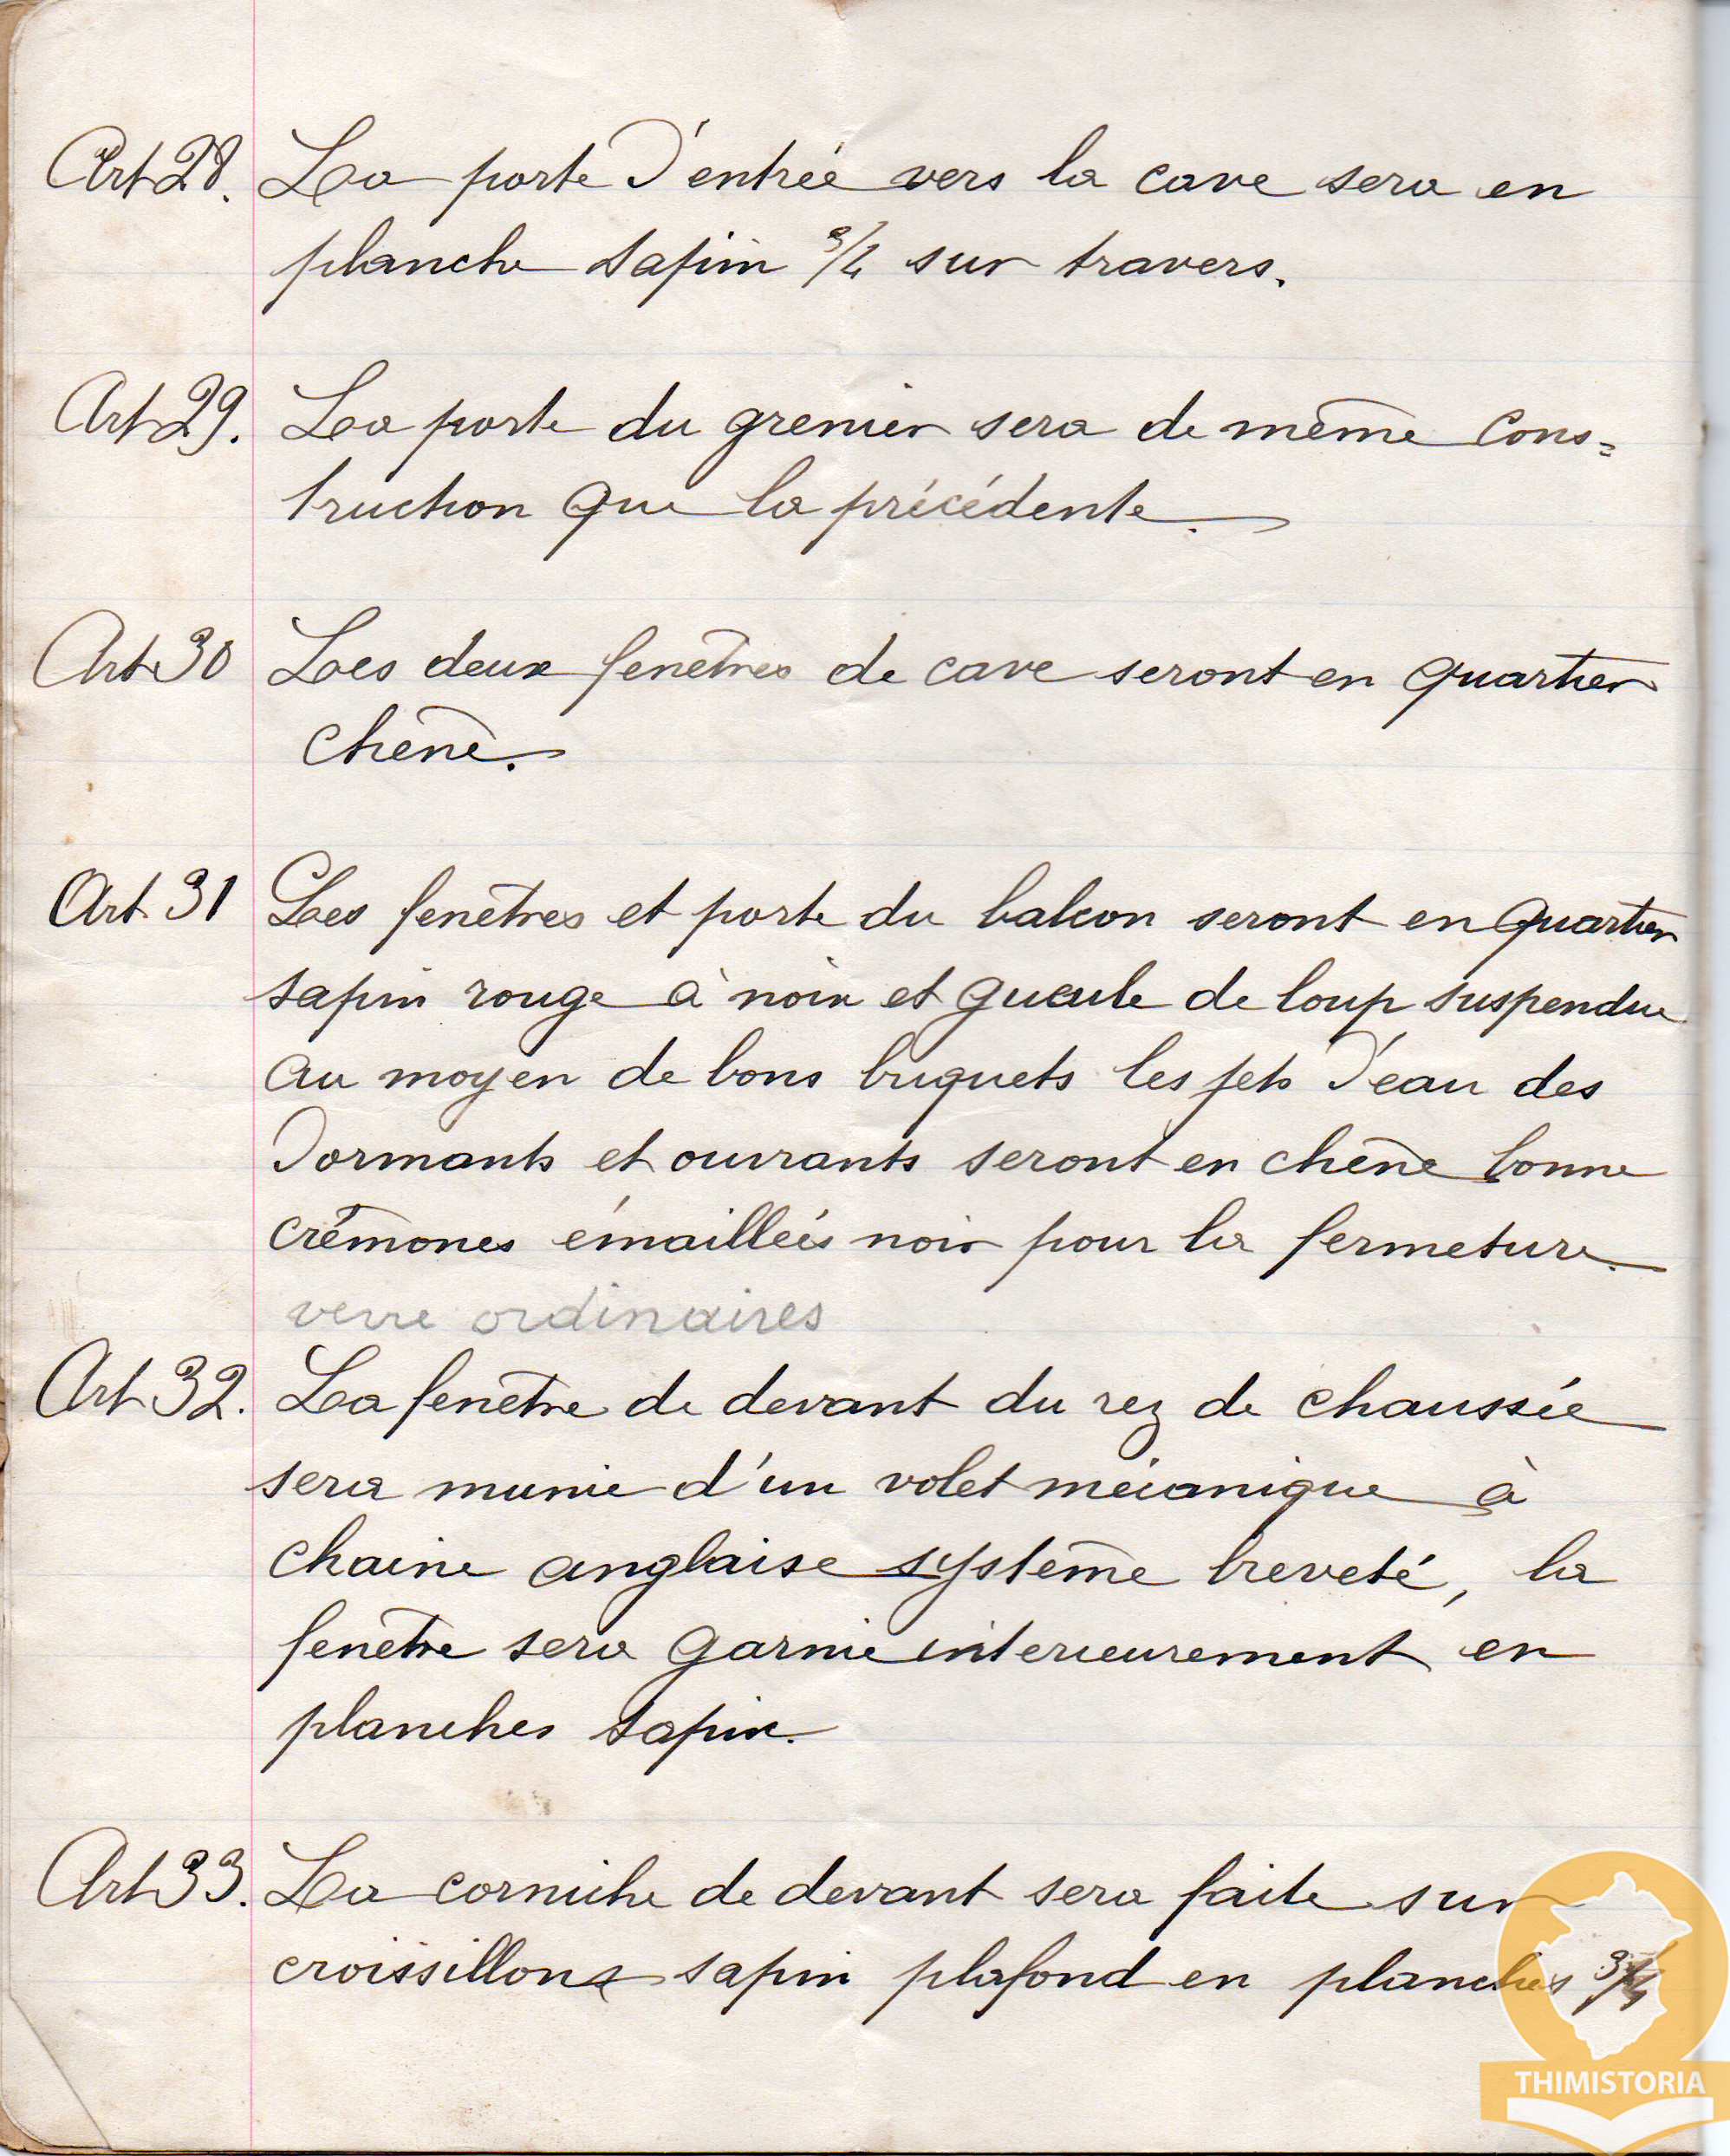 Art 28. La porte d'entrée vers la cave sera en
planche sapin 3/4 sur travers.
Art 29. La porte du grenier sera de même cons=
truction que la précédente.
Art 30 Les deux fenêtres de cave seront en quartier
chêne.
Art 31 Les fenêtres et porte du balcon seront en quartier
sapin rouge à noix et gueule de loup suspendue
au moyen de bons briquets les jets d'eau des
dormants et ouvrants seront en chêne bonne
crémones émaillées noir pour la fermeture.
verre ordinaires
Art 32. La fenêtre de devant du rez de chaussée
sera munie d'un volet mécanique à
chaine anglaise système breveté, la
fenêtre sera garnie interieurement en
planches sapin.
Art 33. La corniche de devant sera faite sur
croissillons sapin plafond en planches 3/4
THIMISTORIA